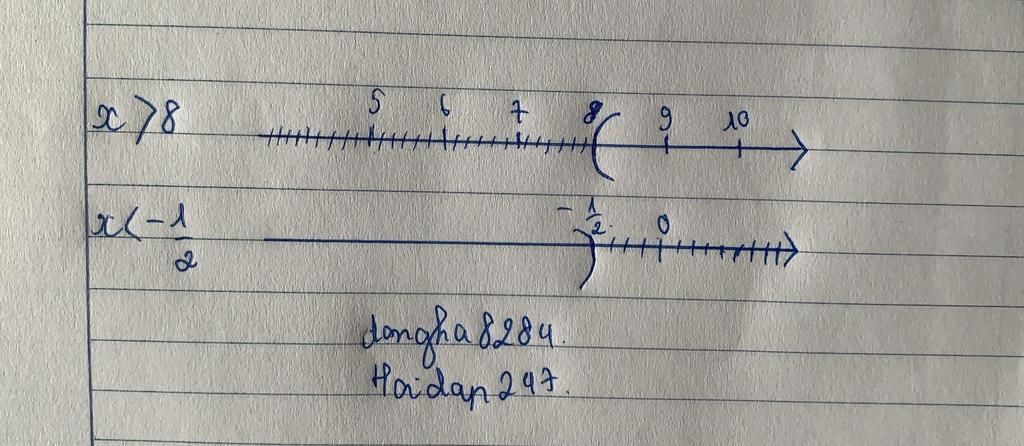 5 6 7 8 9 10
x > 8
x < -1/2
-1/2 0
dongha8284.
Hoidap247.